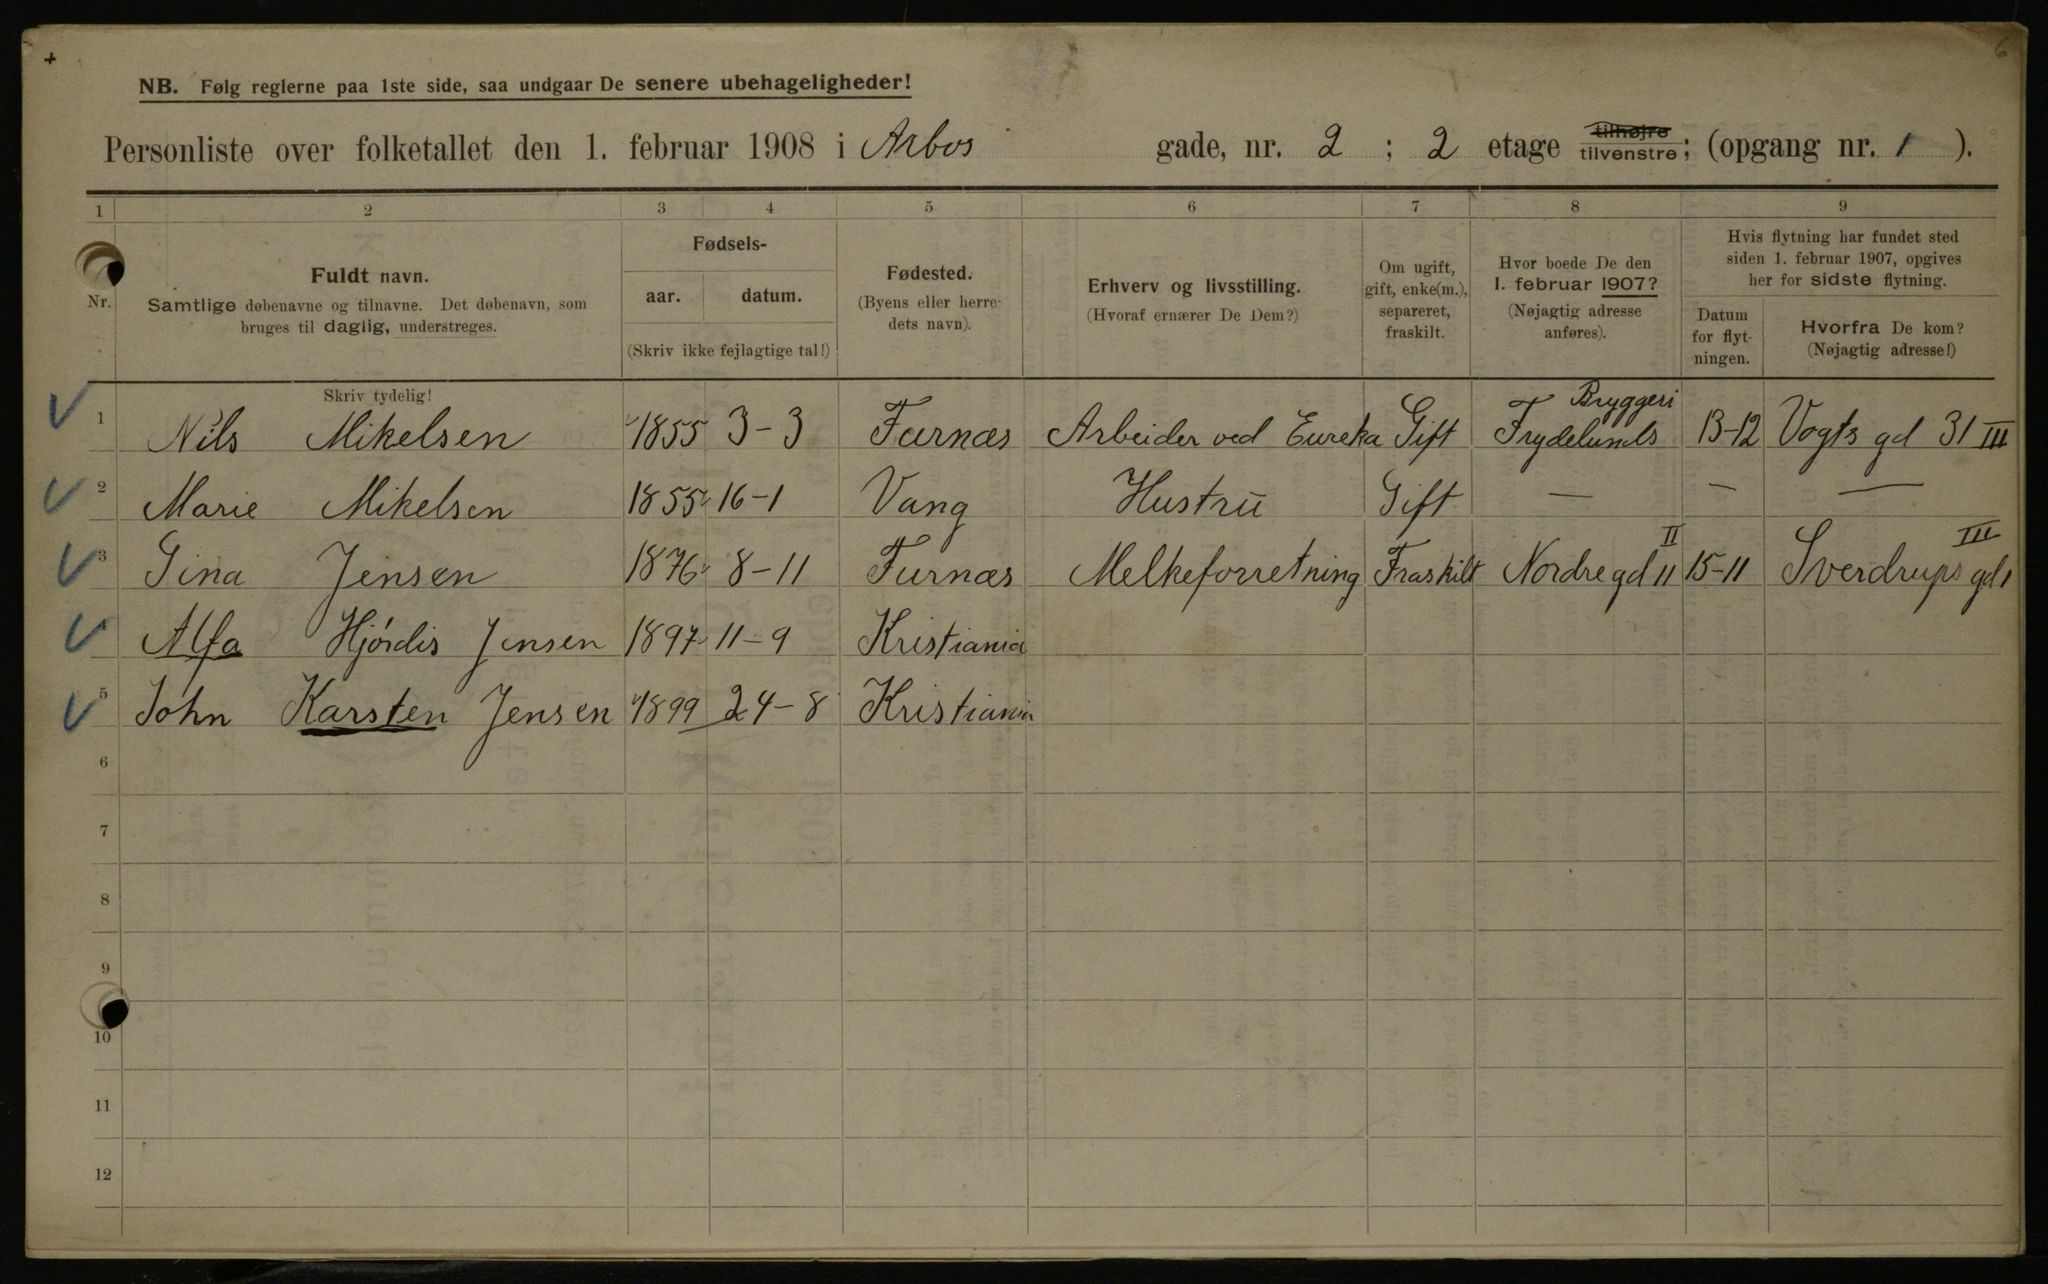 6
NB. Følg reglerne paa 1ste side, saa undgaar De senere ubehageligheder!
Personliste over folketallet den 1. februar 1908 i Arbos gade, nr. 2 ; 2 etage tilhøjre tilvenstre; (opgang nr. 1 ).
1 2 3 4 5 6 7 8 9
Nr.
Fuldt navn.
Samtlige døbenavne og tilnavne. Det døbenavn, som
bruges til daglig, understreges.
Skriv tydelig!
Fødsels-
aar. datum.
(Skriv ikke fejlagtige tal!)
Fødested.
(Byens eller herre-
dets navn).
Erhverv og livsstilling.
(Hvoraf ernærer De Dem?)
Om ugift,
gift, enke(m.),
separeret,
fraskilt.
Hvor boede De den
1. februar 1907?
(Nøjagtig adresse
anføres).
Hvis flytning har fundet sted
siden 1. februar 1907, opgives
her for sidste flytning.
Datum
for flyt-
ningen.
Hvorfra De kom?
(Nøjagtig adresse!)
1 Nils Mikelsen 1855 3-3 Furnæs Arbeider ved Eureka Gift Frydelunds Bryggeri 13-12 Vogts gd 31 III
2 Marie Mikelsen 1855 16-1 Vang Hustru Gift — — —
3 Gina Jensen 1876 8-11 Furnæs Melkeforretning Fraskilt Nordre gd 11 II 15-11 Sverdrups gd 1 III
Alfa Hjørdis Jensen 1897 11-9 Kristiania
5 John Karsten Jensen 1899 24-8 Kristiania
6
7
8
9
10
11
12